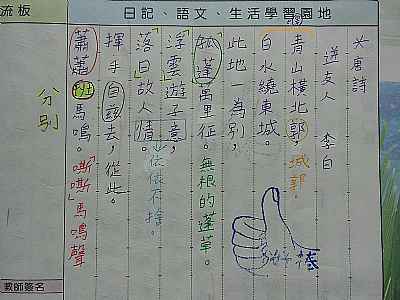 日記、語文、生活學習園地
流板
大唐詩
送友人 李白
青山橫北郭,城郭。
白水繞東城。
此地一為別,
孤蓬萬里征。無根的蓬草。
浮雲遊子意,
落日故人情。依依不捨。
揮手自茲去,從此。
蕭蕭班馬鳴。「嘶嘶」馬鳴聲
分別
你好棒
教師簽名